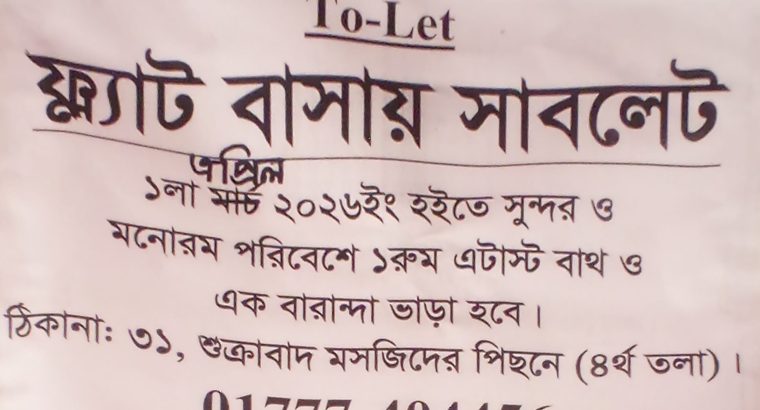 To-Let
ফ্ল্যাট বাসায় সাবলেট
এপ্রিল
১লা মার্চ ২০২৬ইং হইতে সুন্দর ও
মনোরম পরিবেশে ১রুম এটাস্ট বাথ ও
এক বারান্দা ভাড়া হবে।
ঠিকানা: ৩১, শুক্রাবাদ মসজিদের পিছনে (৪র্থ তলা)।